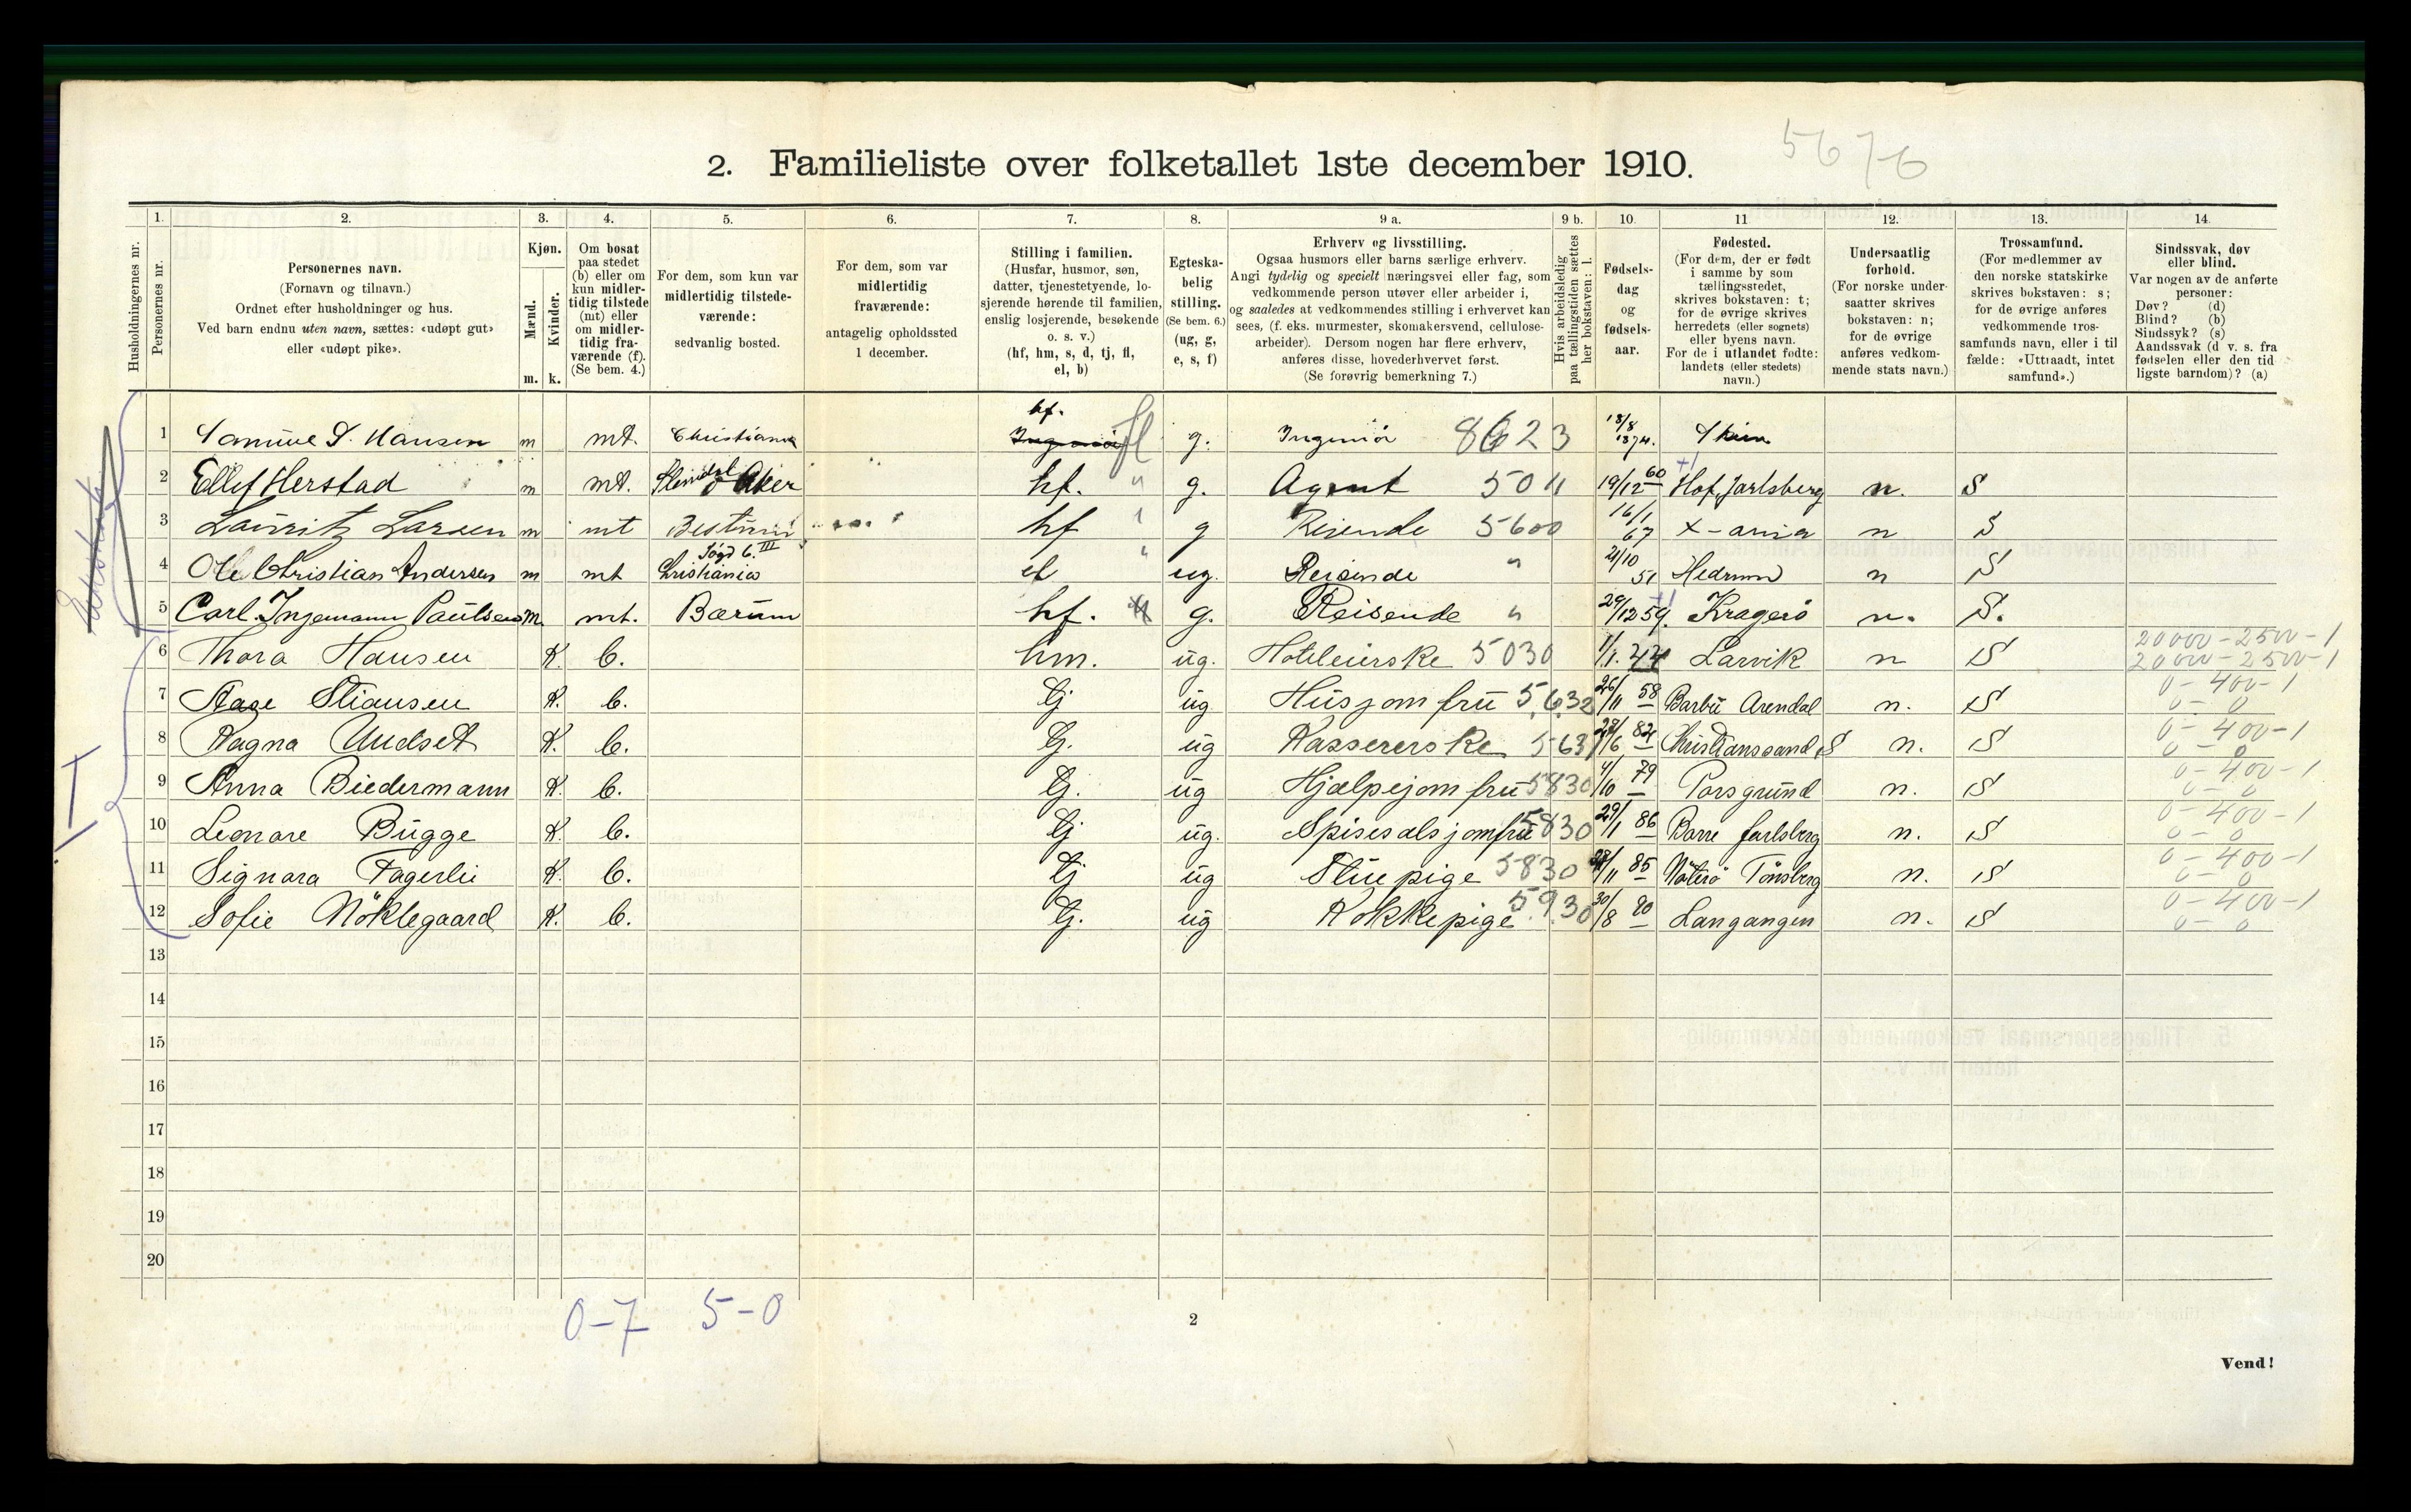 5676
2. Familieliste over folketallet 1ste december 1910.
1. 2. 3. 4. 5. 6. 7. 8. 9 a. 9 b. 10. 11 12. 13. 14.
Husholdningernes nr.
Personernes nr.
Personernes navn.
(Fornavn og tilnavn.)
Ordnet efter husholdninger og hus.
Ved barn endnu uten navn, sættes: «udøpt gut»
eller «udøpt pike».
Kjøn.
Mænd.
Kvinder.
m. k.
Om bosat
paa stedet
(b) eller om
kun midler-
tidig tilstede
(mt) eller
om midler-
tidig fra-
værende (f).
(Se bem. 4.)
For dem, som kun var
midlertidig tilstede-
værende:
sedvanlig bosted.
For dem, som var
midlertidig
fraværende:
antagelig opholdssted
1 december.
Stilling i familien.
(Husfar, husmor, søn,
datter, tjenestetyende, lo-
sjerende hørende til familien,
enslig losjerende, besøkende
o. s. v.)
(hf, hm, s, d, tj, fl,
el, b)
Egteska-
belig
stilling.
(Se bem. 6.)
(ug, g,
e, s, f)
Erhverv og livsstilling.
Ogsaa husmors eller barns særlige erhverv.
Angi tydelig og specielt næringsvei eller fag, som
vedkommende person utøver eller arbeider i,
og saaledes at vedkommendes stilling i erhvervet kan
sees, (f. eks. murmester, skomakersvend, cellulose-
arbeider). Dersom nogen har flere erhverv,
anføres disse, hovederhvervet først.
(Se forøvrig bemerkning 7.)
Hvis arbeidsledig
paa tællingstiden sættes
her bokstaven: l.
Fødsels-
dag
og
fødsels-
aar.
Fødested.
(For dem, der er født
i samme by som
tællingsstedet,
skrives bokstaven: t;
for de øvrige skrives
herredets (eller sognets)
eller byens navn.
For de i utlandet fødte:
landets (eller stedets)
navn.)
Undersaatlig
forhold.
(For norske under-
saatter skrives
bokstaven: n;
for de øvrige
anføres vedkom-
mende stats navn.)
Trossamfund.
(For medlemmer av
den norske statskirke
skrives bokstaven: s;
for de øvrige anføres
vedkommende tros-
samfunds navn, eller i til
fælde: «Uttraadt, intet
samfund».)
Sindssvak, døv
eller blind.
Var nogen av de anførte
personer:
Døv? (d)
Blind? (b)
Sindssyk? (s)
Aandssvak (d v. s. fra
fødselen eller den tid
ligste barndom)? (a)
1 Samuel S. Hansen m mt. Christiania hf. fl g. Ingeniör 8623 18/8 1874. Skien
2 Ellef Herstad m mt. Aker hf. " g. Agent 5011 19/12 60 Hof, Jarlsberg n. S
3 Lauritz Larsen m mt hf g Reisende 5600 16/1 67 X-ania n S
4 Ole Christian Andersen m mt Christiania el " ug. Reisende " 21/10 51 Hedrum n S
5 Carl Ingemann Paulsen m. mt. Bærum hf. g. Reisende " 29/12 59. Kragerö n. S.
6 Thora Hansen K. b. hm. ug. Hoteleierske 5030 1/1. 44 Larvik n S 20000-2500-1
20000-2500-1
7 Aase Stiansen K. b. tj ug Husjomfru 5632 26/11 58 Barbu Arendal n. S 0-400-1
0-0
8 Ragna Audset K. b. tj. ug Kassererske 5637 6 82 Kristianssand S n. S 0-400-1
0-0
9 Anna Biedermann K. b. tj. ug Hjælpejomfru 5830 4/10 79 Porsgrund n. S 0-400-1
0-0
10 Leonare Bugge K. b. tj ug. Spisesalsjomfru 5830 29/1 86 Borre Jarlsberg n. S 0-400-1
0-0
11 Signora Fagerlie K. b. tj ug Stuepige 5830 11 85 Nöterö Tönsberg n. S 0-400-1
0-0
12 Sofie Nöklegaard K. b. tj. ug Kokkepige 5930 30/8 80 Langangen n. S 0-400-1
0-0
13
14
15
16
17
18
19
20
0-7 5-0
2
Vend!